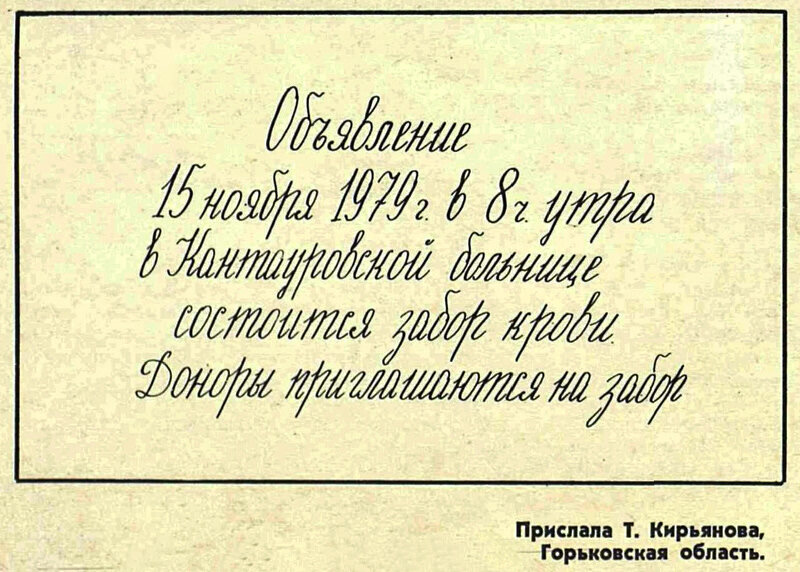 Объявление
15 ноября 1979 г. в 8 ч. утра
в Кантауровской больнице
состоится забор крови.
Доноры приглашаются на забор
Прислала Т. Кирьянова,
Горьковская область.